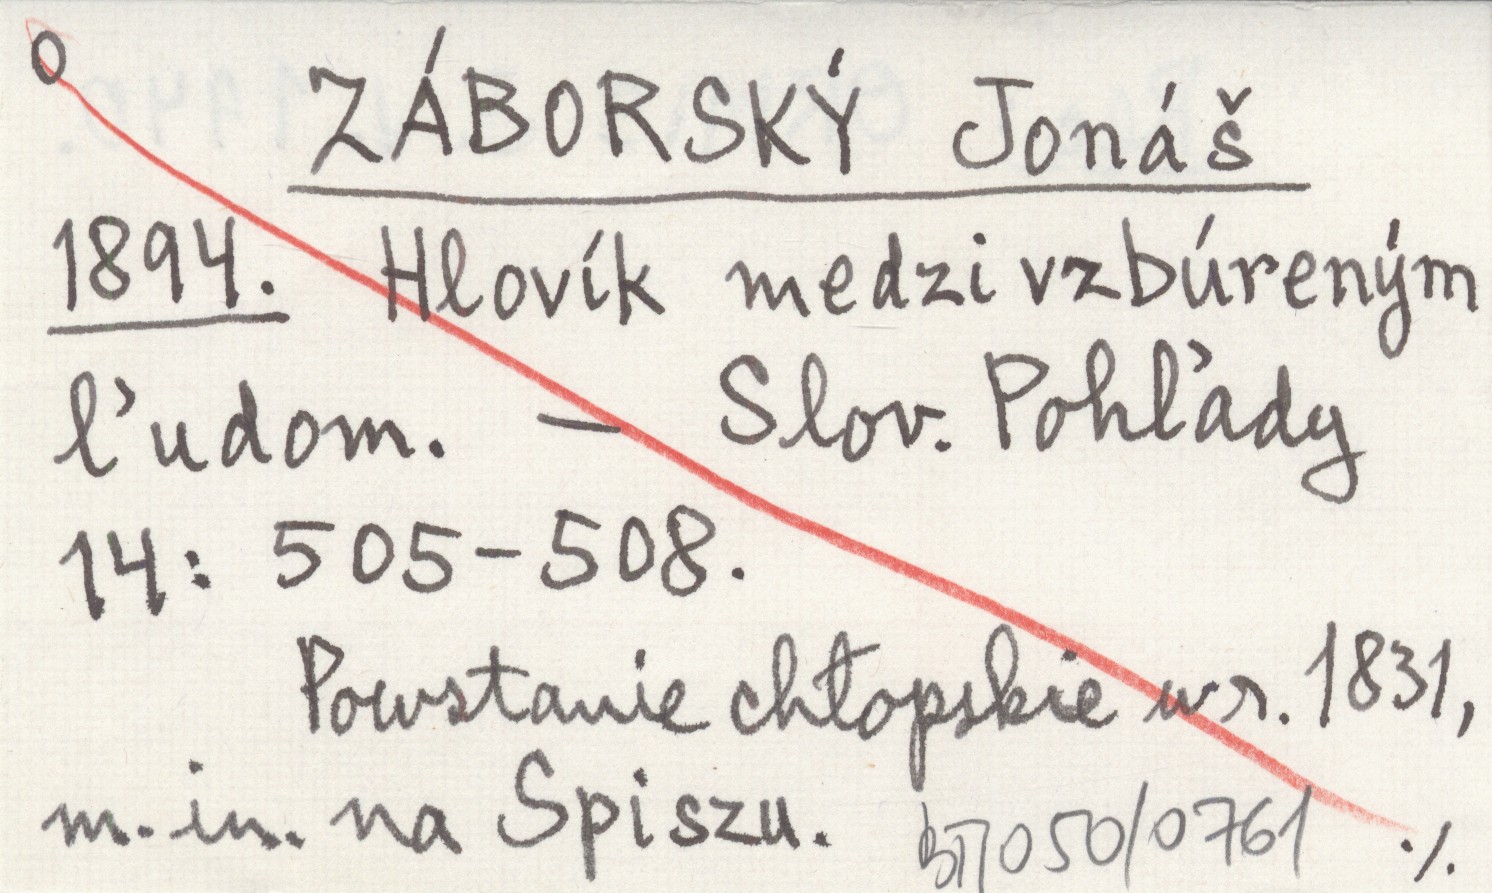 O
ZÁBORSKÝ Jonáš
1894. Hlovík medzi vzbúreným
ľudom. — Slov. Pohľady
14: 505-508.
Powstanie chłopskie w r. 1831,
m. in. na Spiszu.
050/0761
./.